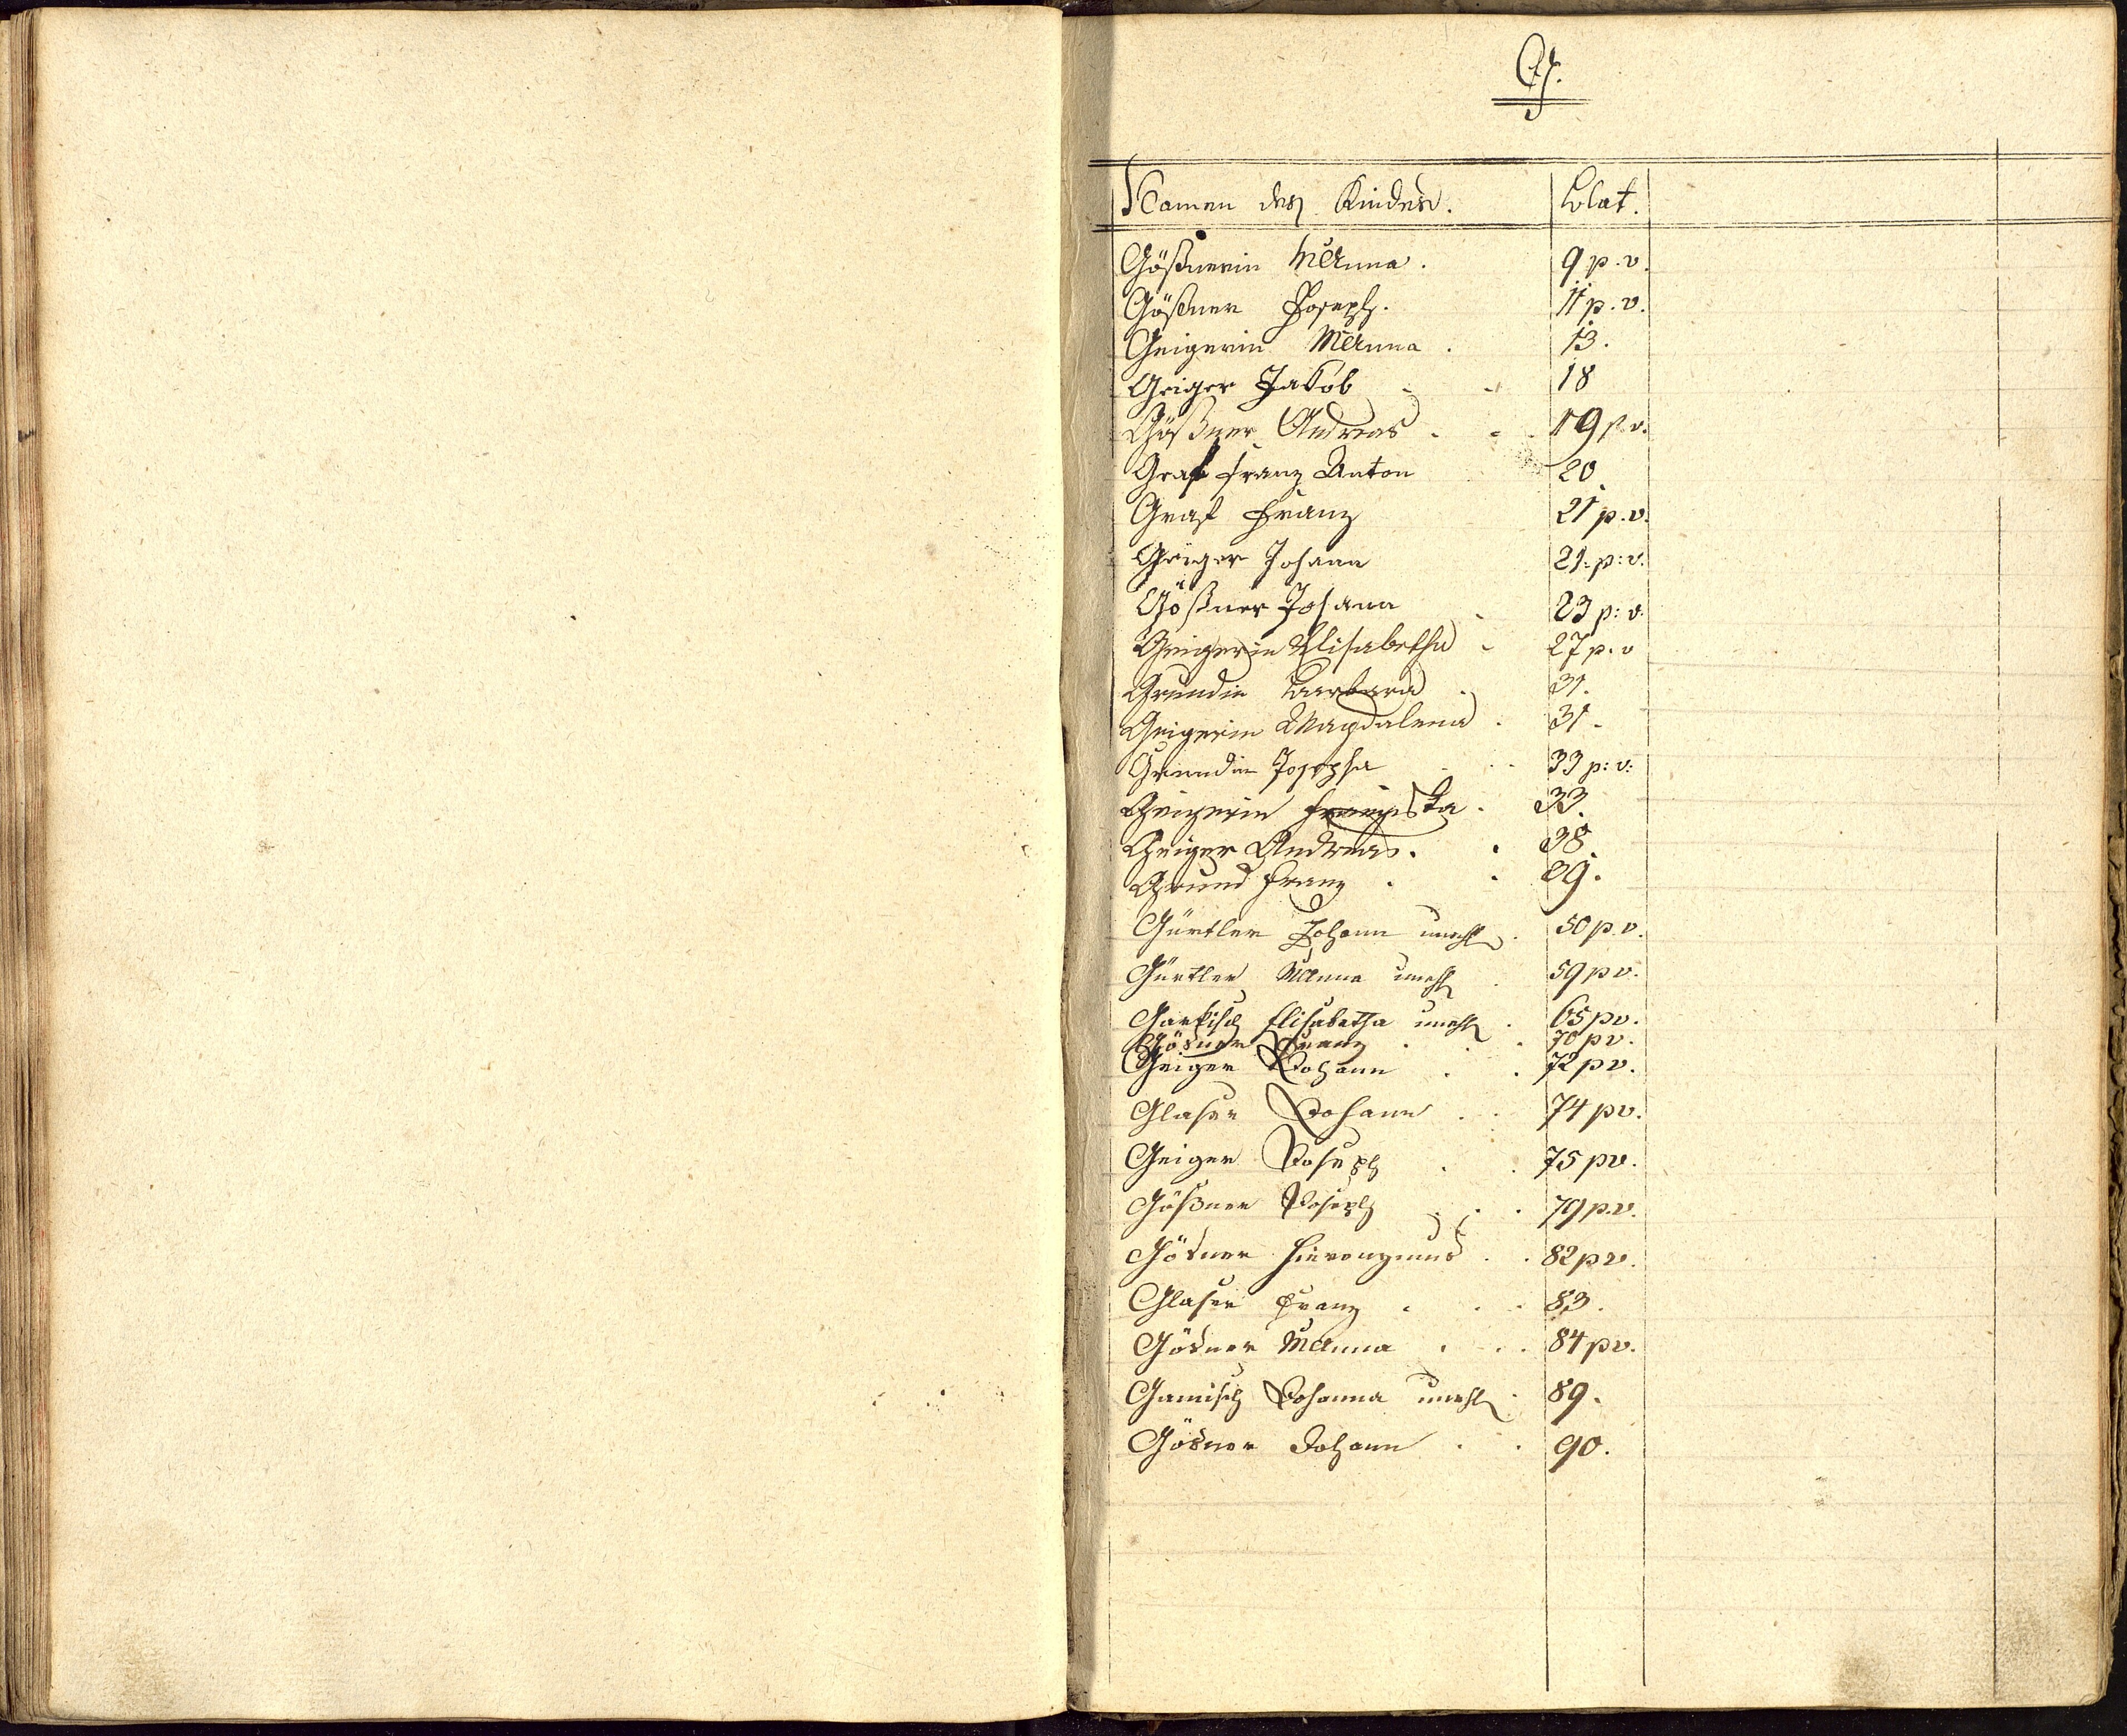 G.
Namen des Kindes. Blat.
Gößnerin MAnna. 9 p. v.
Gößner Joseph. 11 p. v.
Geigerin MAnna. 13.
Geiger Jakob 18
Gößner Andreas 19 p. v.
Graf Franz Anton 20
Graf Franz 21 p. v.
Geiger Johann 21. p: v.
Gößner Johann 23 p: v.
Geigerin Elisabetha 27 p. v
Grundin Barbara 31.
Geigerin Magdalena 31.
Grundin Josepha 33 p: v:
Geigerin Franziska. 33.
Geiger Andreas. 38
Grund Franz. 39.
Gürtler Johann unehl. 50 p. v.
Gürtler MAnna unehl 59 p v.
Elisabetha unehl. 65 p v.
Gösner Franz 70 p v.
Geiger Johann 72 p v.
Glaser Johann 74 p v.
Geiger Joseph 75 p v.
Gößner Joseph 79 p. v.
Gösner Hieronymus 82 p v.
Glaser Franz 83.
Gösner MAnna 84 p v.
Gamisch Johanna unehl. 89.
Gösner Johann 90.